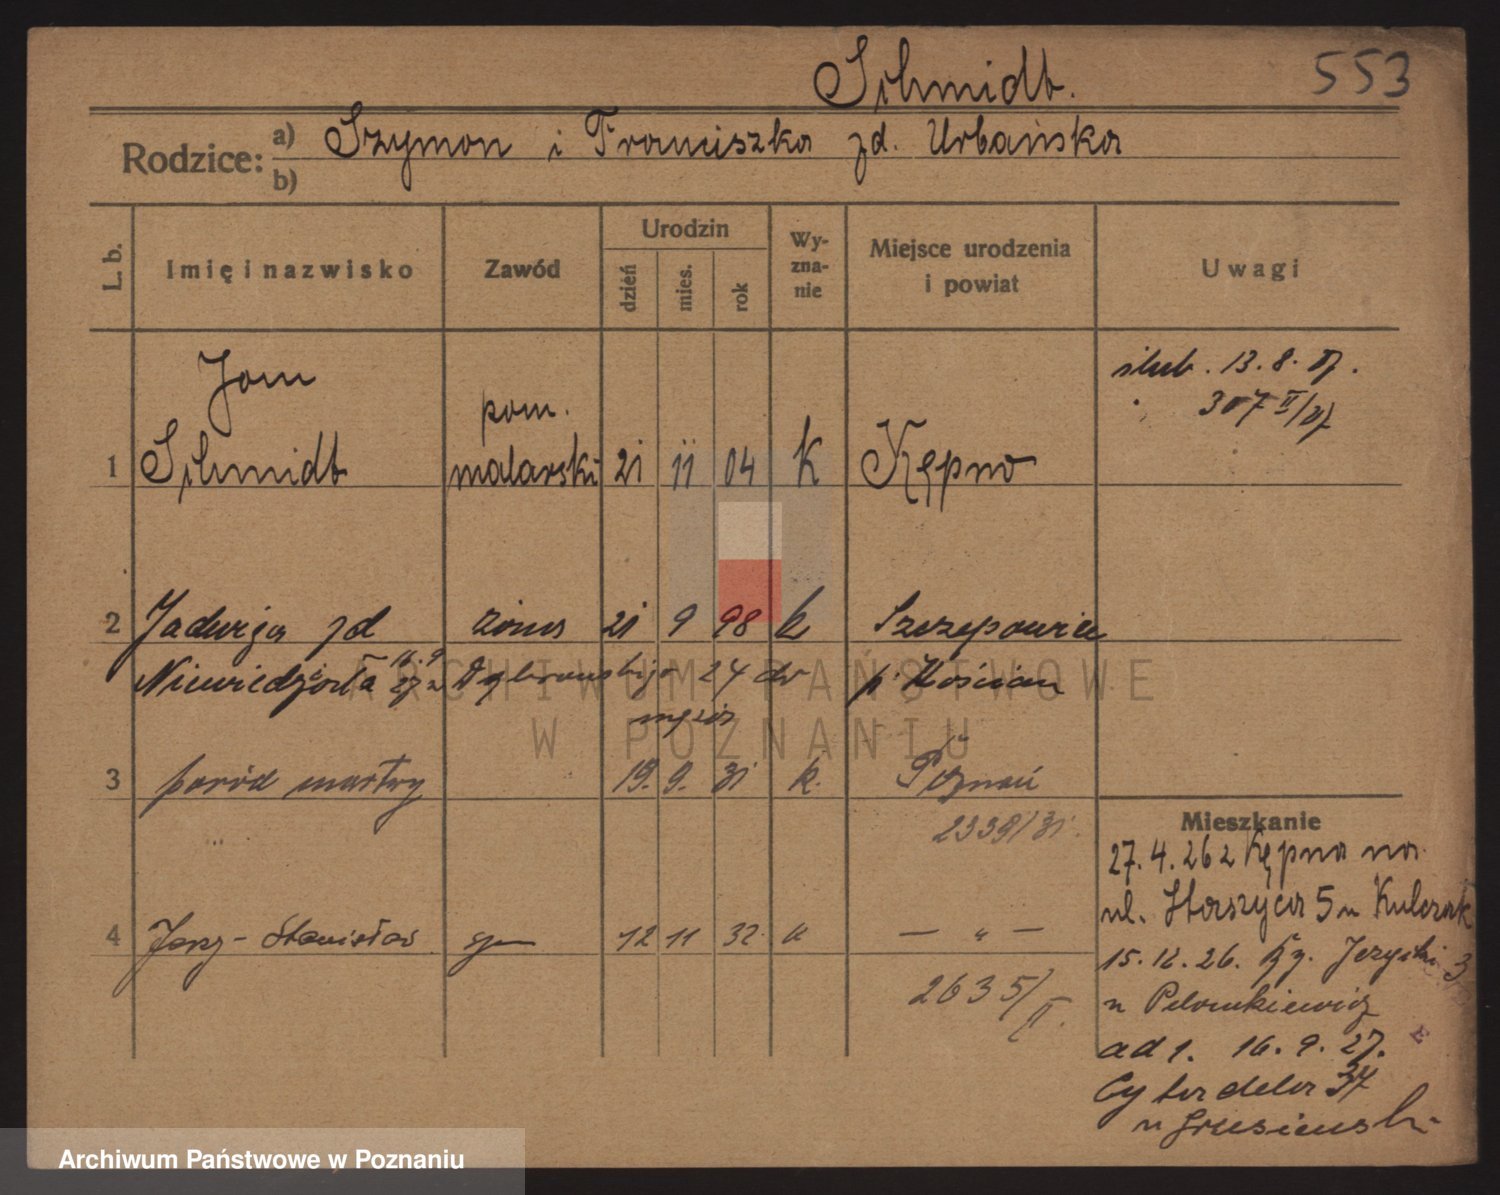 Schmidt.
553
Rodzice:
a) Szymon i Franciszka zd. Urbańska
b)
L. b.
Imię i nazwisko
Zawód
Urodzin
dzień
mies.
rok
Wy-
zna-
nie
Miejsce urodzenia
i powiat
Uwagi
Jan
ślub. 13. 8. 27.
307 II/27
pom.
1 Schmidt malarski 21 11 04 K Kępno
2 Jadwiga zd żona 21 9 98 k Szczepowice
16. 9
27 z Dąbrowskiego 24 do
męża
p. Kościan
3 poród martwy 19. 9. 31 k. Poznań
2339/31.
4 Jerzy-Stanisław syn 12 11 32. " — " —
2635/II.
Mieszkanie
27. 4. 26 z Kępna na
ul. Staszyca 5 u Kulczak
15. 12. 26. 3
u
ad 1. 16. 9. 27.
Cytadela 37
u
ARCHIWUM PAŃSTWOWE
W POZNANIU
Archiwum Państwowe w Poznaniu